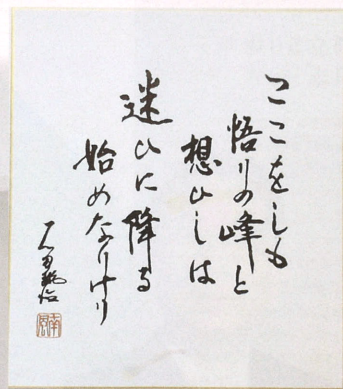 ここをしも
悟りの峰と
想ひしは
迷ひに降る
始めなりけり